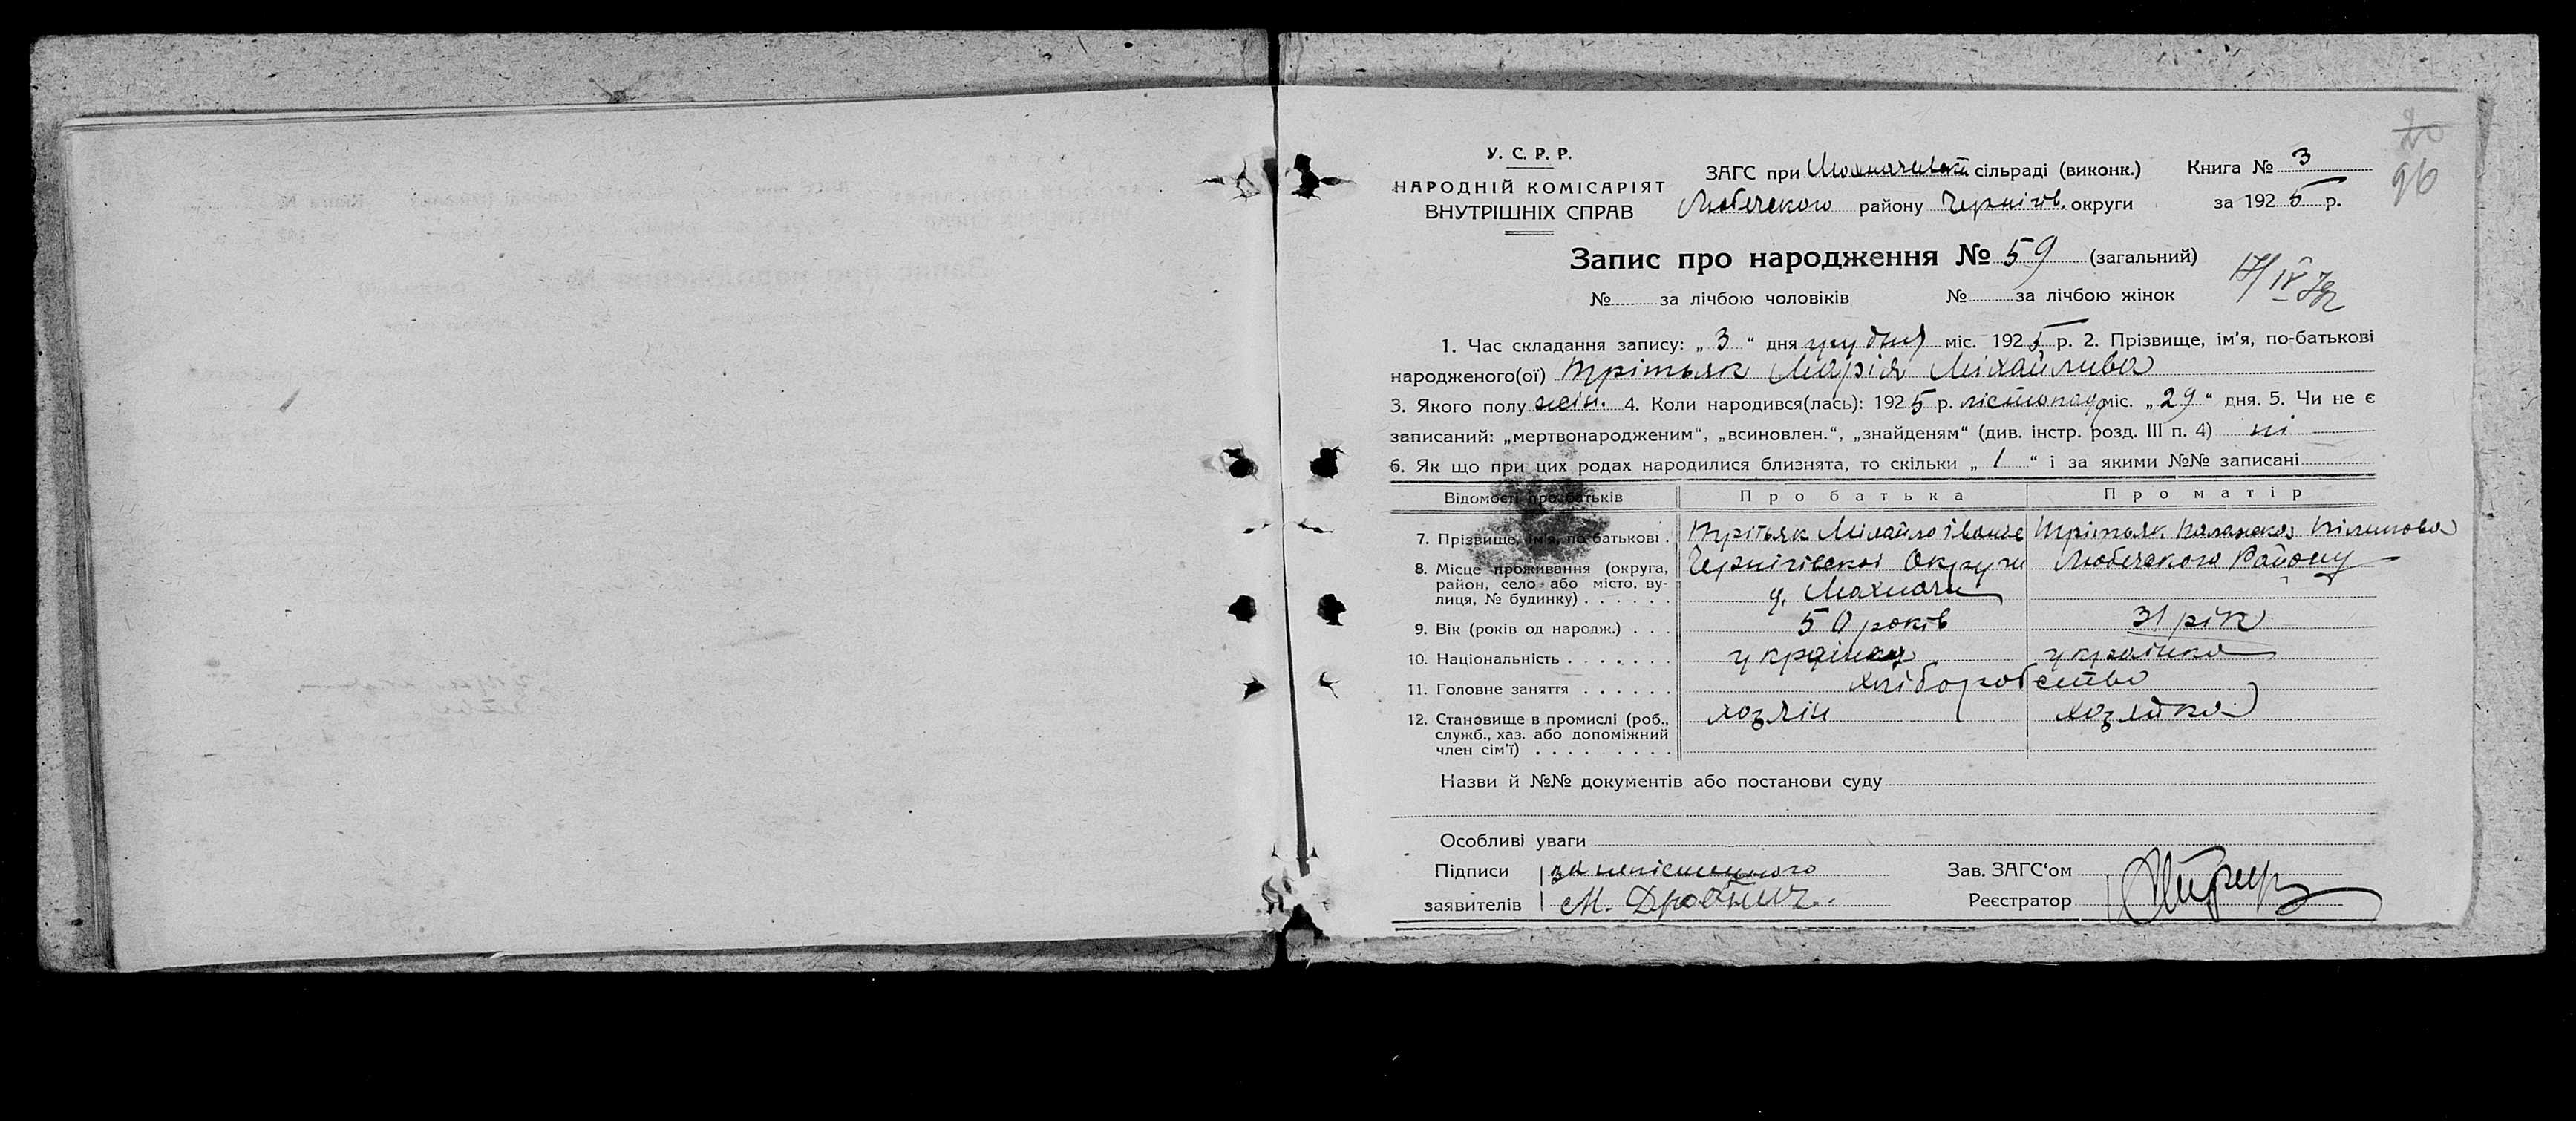 20
96
У. С. Р. Р.
НАРОДНІЙ КОМІСАРІЯТ
ВНУТРІШНІХ СПРАВ
ЗАГС при сільраді (виконк.) Книга № 3
Любечского району Чернігів. округи за 1925 р.
Запис про народження № 59 (загальний)
№ за лічбою чоловіків № за лічбою жінок
1. Час складання запису: „ 3 “ дня грудня міс. 1925 р. 2. Прізвище, ім'я, по-батькові
народженого(ої) Трітьяк Марія Міхайлива
3. Якого полу жін. 4. Коли народився(лась): 1925 р. лістопад міс. „ 29 “ дня. 5. Чи не є
записаний: „мертвонародженим“, „всиновлен.“, „знайденям“ (див. інстр. розд. III п. 4) ні
6. Як що при цих родах народилися близнята, то скільки „ 1 “ і за якими №№ записані
Відомості про батьків Про батька Про матір
7. Прізвище, ім'я, по батькові . Трітьяк Міхайло Трітьяк
8. Місце проживання (округа, Чернігівскоі Округи Любечского Району
район, село або місто, ву-
лиця, № будинку) . . . . . .
9. Вік (років од народж.) . . . 50 років 31 рік
10. Національність . . . . . . . українец українка
11. Головне заняття . . . . . . хліборобство
12. Становище в промислі (роб., хозяін хозяйка
служб., хаз. або допоміжний
член сім'ї) . . . . . . . . .
Назви й №№ документів або постанови суду
Особливі уваги
Підписи за непісменного Зав. ЗАГС'ом
заявителів М. Реєстратор